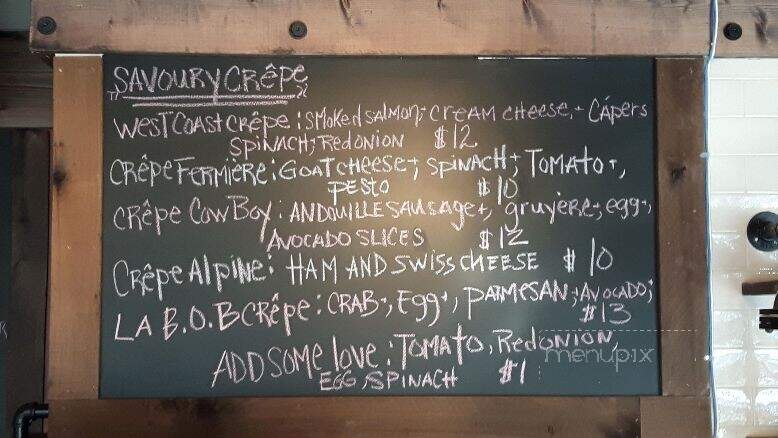 SAVOURY CRÊPE
WEST COAST CRÊPE: SMOKED SALMON+ CREAM CHEESE, + CAPERS
SPINACH, RED ONION $12
CRÊPE FERMIÈRE: GOAT CHEESE+, SPINACH+, TOMATO+,
PESTO $10
CRÊPE COWBOY: ANDOUILLE SAUSAGE+, gruyère+, egg+,
AVOCADO SLICES $12
CRÊPE ALPINE: HAM AND SWISS CHEESE $10
LA B.O.B CRÊPE: CRAB+, EGG+, PARMESAN+, AVOCADO;
$13
ADD SOME LOVE: TOMATO, RED ONION,
EGG, SPINACH $1
menupix